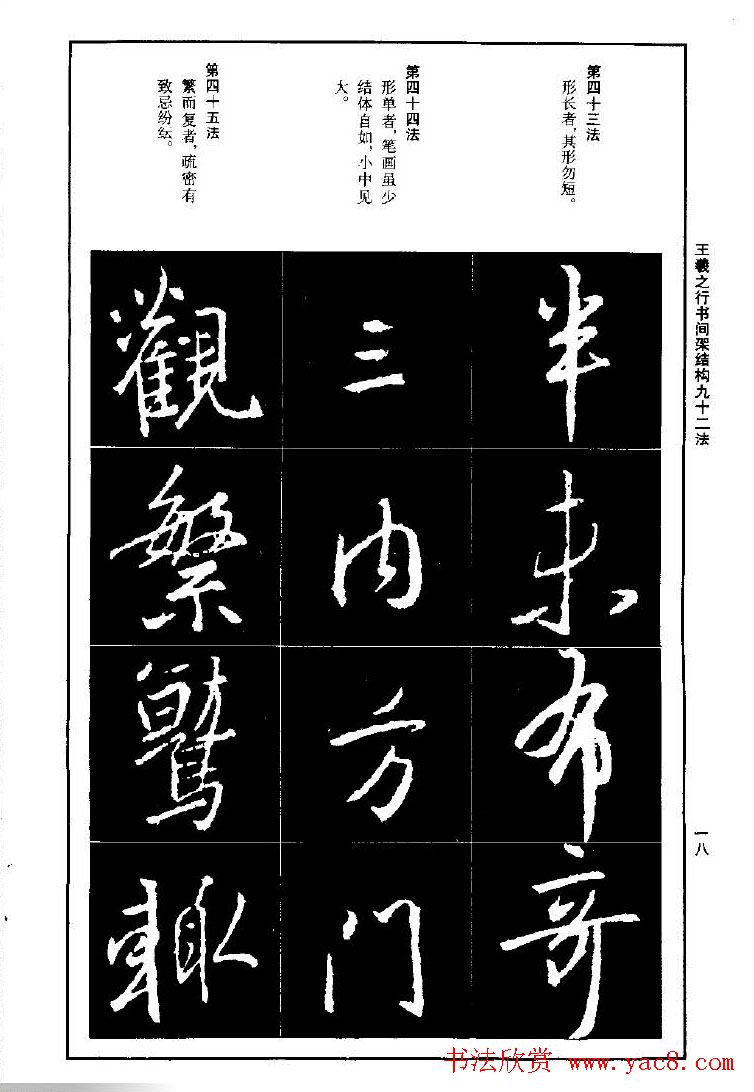 王羲之行书间架结构九十二法
一八
第四十三法
形长者，其形勿短。
半未布奇
第四十四法
形单者，笔画虽少
结体自如，小中见
大。
三内方门
第四十五法
繁而复者，疏密有
致忌纷纭。
觀繁驚輙
书法欣赏 www.yac8.com